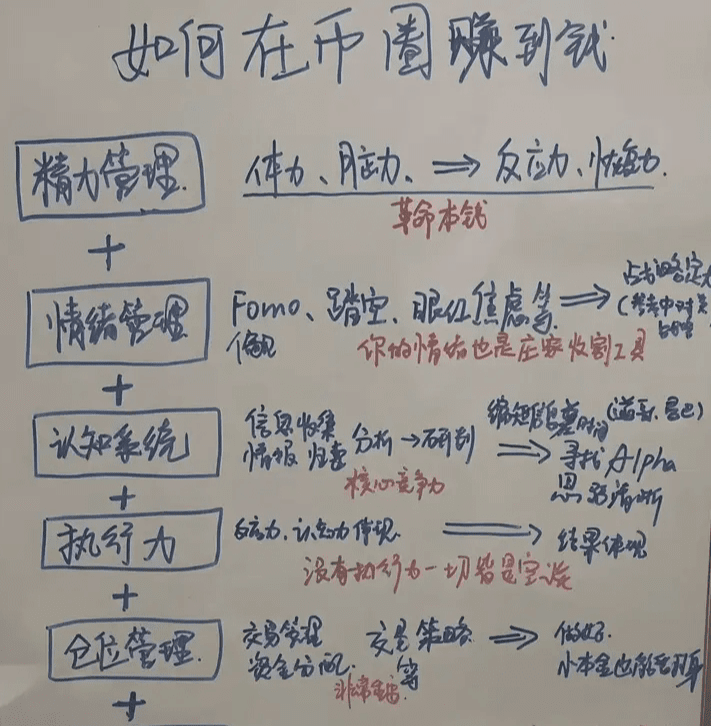 如何在币圈赚到钱
精力管理. 体力、脑力、⇒ 反应力、恢复力.
革命本钱
+
情绪管理 Fomo、踏空、眼红焦虑等 ⇒
偏见 你的情绪也是庄家收割工具
+
认知系统 信息收集 分析→研判 ⇒ 寻找Alpha
情报 归集 思路清晰
核心竞争力
+
执行力 反应力、认知力体现. ⇒ 结果体现
没有执行力一切皆是空谈
+
仓位管理. 交易管理 交易策略 ⇒ 做好.
资金分配. 等 小本金也能翻身
非常重要.
+